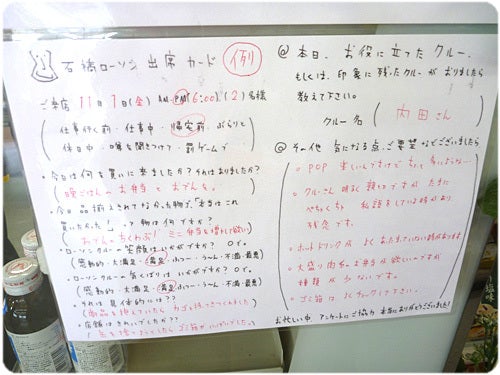 石橋ローソン 出席カード (例)
ご来店 11月1日(金) AM・PM(6:00)、(2)名様
(仕事行く前・仕事中・帰宅前・ぶらりと
休日中・噂を聞きつけて・罰ゲームで)
・今日は何を買いに来ましたか?それはありましたか?
(晩ごはんのお弁当とおでんを。)
・今日品揃えされてなかった物で、「本当はこれ
買いたかった!」って物は何ですか?
(おでんのちくわぶ! ミニ弁当を増やして欲しい)
・ローソンクルーの笑顔はいかがですか? ○で。
(感動的・大満足・満足・ふつー・うーん・不満・最悪)
・ローソンクルーの気くばりはいかがですか? ○で。
(感動的・大満足・満足・ふつー・うーん・不満・最悪)
・それは具体的には??
(商品を探していたらカゴを持ってきてくれました)
・店舗はきれいでしたか??
@ 本日、お役に立てたクルー、
もしくは、印象に残ったクルーがおりましたら
教えて下さい。
クルー名 (内田さん)
@ その他 気になる点、ご要望などございましたら
・POP 楽しいんですけどちょっと多いような…
・クルーさん 明るく親切ですが たまに
ぺちゃくちゃ 私語をしている時があり
残念です。
・ホットドリンクが よくあたたまっていない時があります
・大盛り肉系のお弁当が欲しいのですが
種類が少ないです。
・ゴミ箱はよくチェックして下さい。
お忙しい中 アンケートにご協力 本当にありがとうございました!